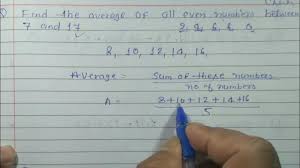 Find the average of all even numbers between
7 and 17
8, 10, 12, 14, 16,
Average = Sum of these numbers
no of numbers
A = 8+10+12+14+16
5